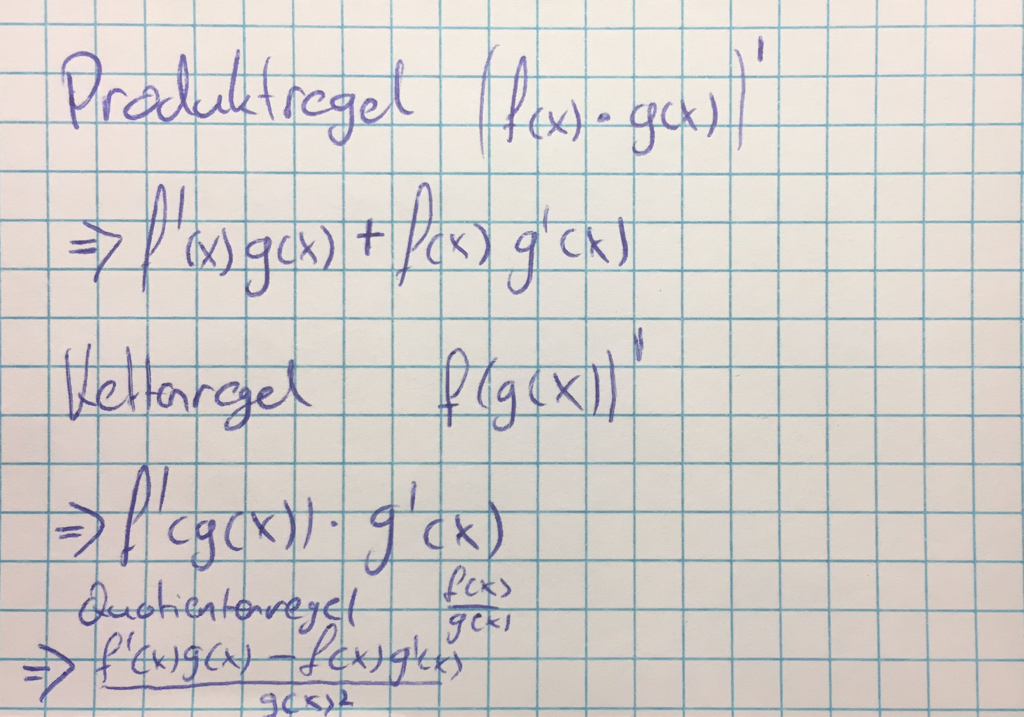 Produktregel (f(x) · g(x))'
⇒ f'(x) g(x) + f(x) g'(x)
Kettenregel f(g(x))'
⇒ f'(g(x)) · g'(x)
Quotientenregel f(x)/g(x)
⇒ f'(x)g(x) − f(x)g'(x)
g(x)²